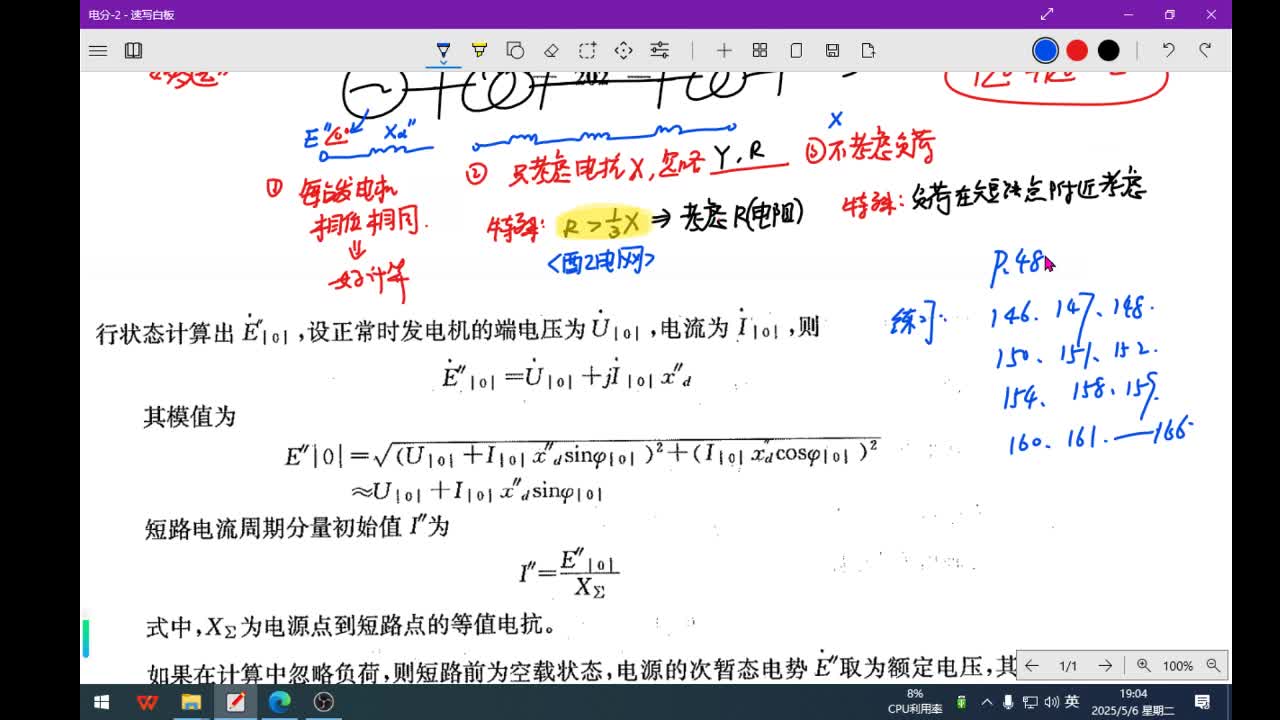 电分-2 - 速写白板
E″∠0° Xd″ X
① 每台发电机 ② 只考虑电抗X,忽略 Y、R ③ 不考虑负荷
相位相同.
⇓
好计算
特殊: R>1/3X ⇒ 考虑R(电阻)
<配电网>
特殊: 负荷在短路点附近考虑
P.48
练习: 146、147、148.
150、151、152.
154、158、159.
160、161.—166.
行状态计算出 Ė″|0|,设正常时发电机的端电压为 U̇|0|,电流为 İ|0|,则
Ė″|0|=U̇|0|+jİ|0|x″d
其模值为
E″|0|=√(U|0|+I|0|x″dsinφ|0|)²+(I|0|x″dcosφ|0|)²
≈U|0|+I|0|x″dsinφ|0|
短路电流周期分量初始值 I″为
I″=E″|0|/XΣ
式中,XΣ为电源点到短路点的等值电抗。
如果在计算中忽略负荷,则短路前为空载状态,电源的次暂态电势 Ė″取为额定电压,其
1/1 100%
8%
CPU利用率
英
19:04
2025/5/6 星期二